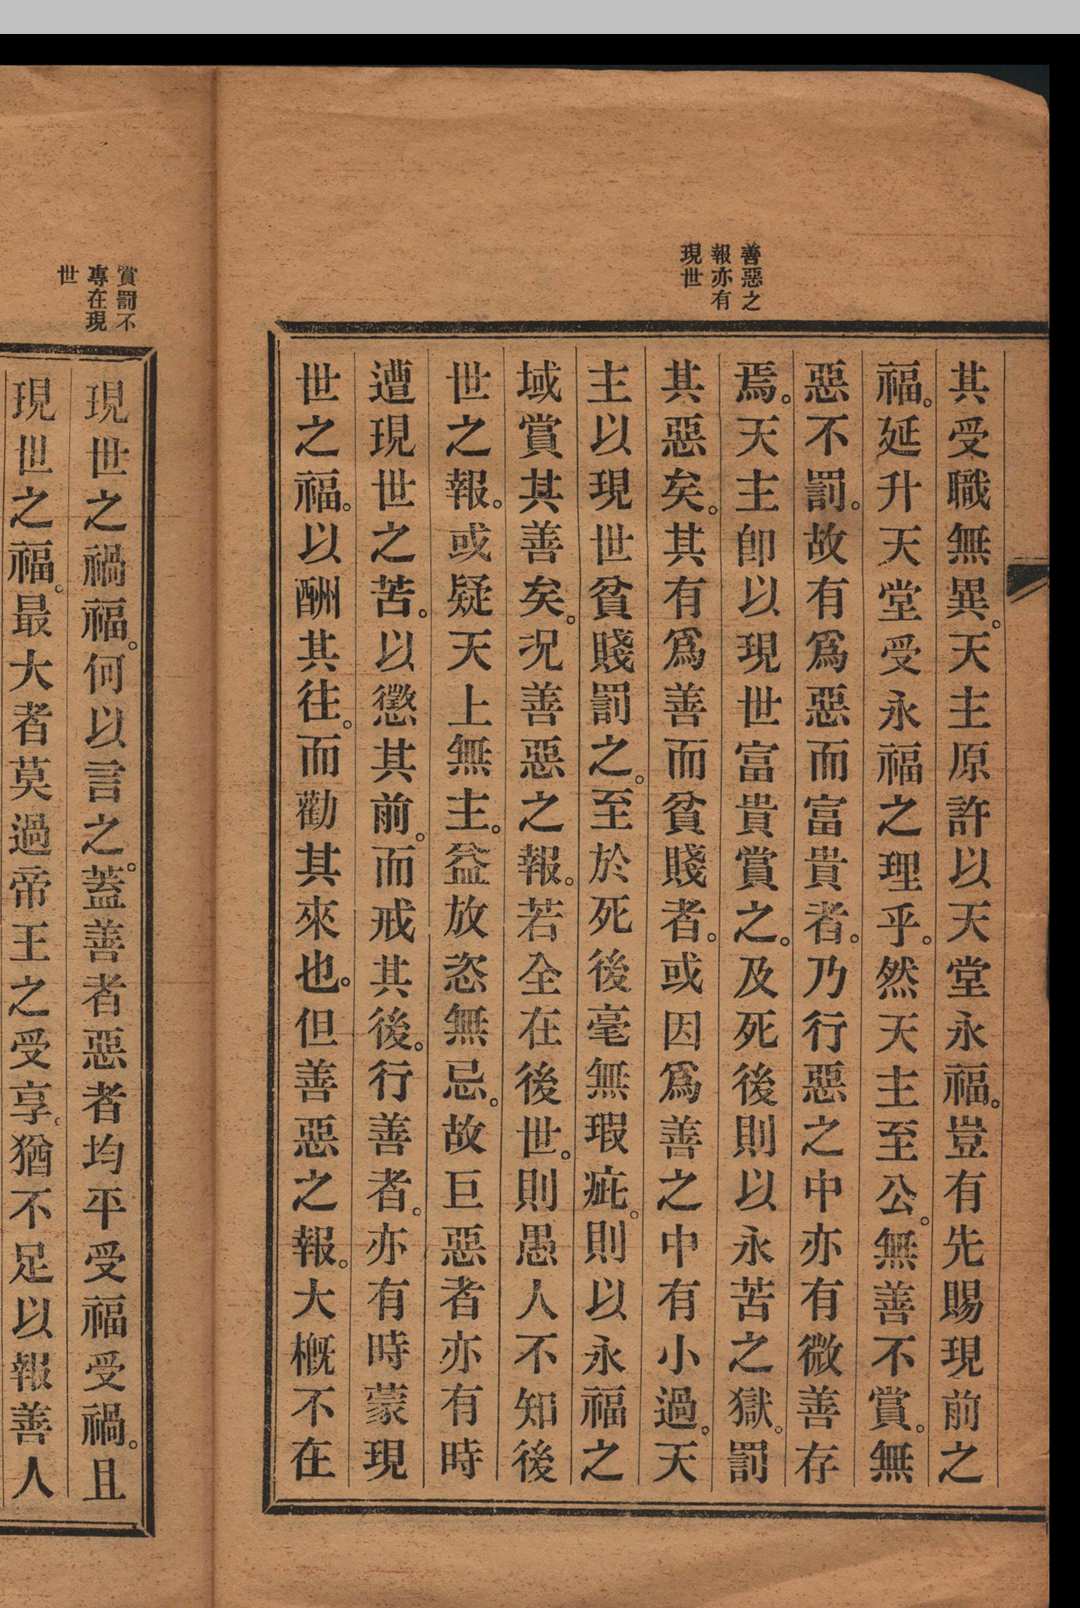 善惡之
報亦有
現世
其受職無異。天主原許以天堂永福。豈有先賜現前之
福。延升天堂受永福之理乎。然天主至公。無善不賞。無
惡不罰。故有爲惡而富貴者。乃行惡之中亦有微善存
焉。天主卽以現世富貴賞之。及死後則以永苦之獄。罰
其惡矣。其有爲善而貧賤者。或因爲善之中有小過。天
主以現世貧賤罰之。至於死後毫無瑕疵。則以永福之
域賞其善矣。况善惡之報。若全在後世。則愚人不知後
世之報。或疑天上無主。益放恣無忌。故巨惡者亦有時
遭現世之苦。以懲其前。而戒其後。行善者。亦有時蒙現
世之福。以酬其往。而勸其來也。但善惡之報。大概不在
賞罰不
專在現
世
現世之禍福。何以言之。蓋善者惡者均平受福受禍。且
現世之福。最大者莫過帝王之受享。猶不足以報善人